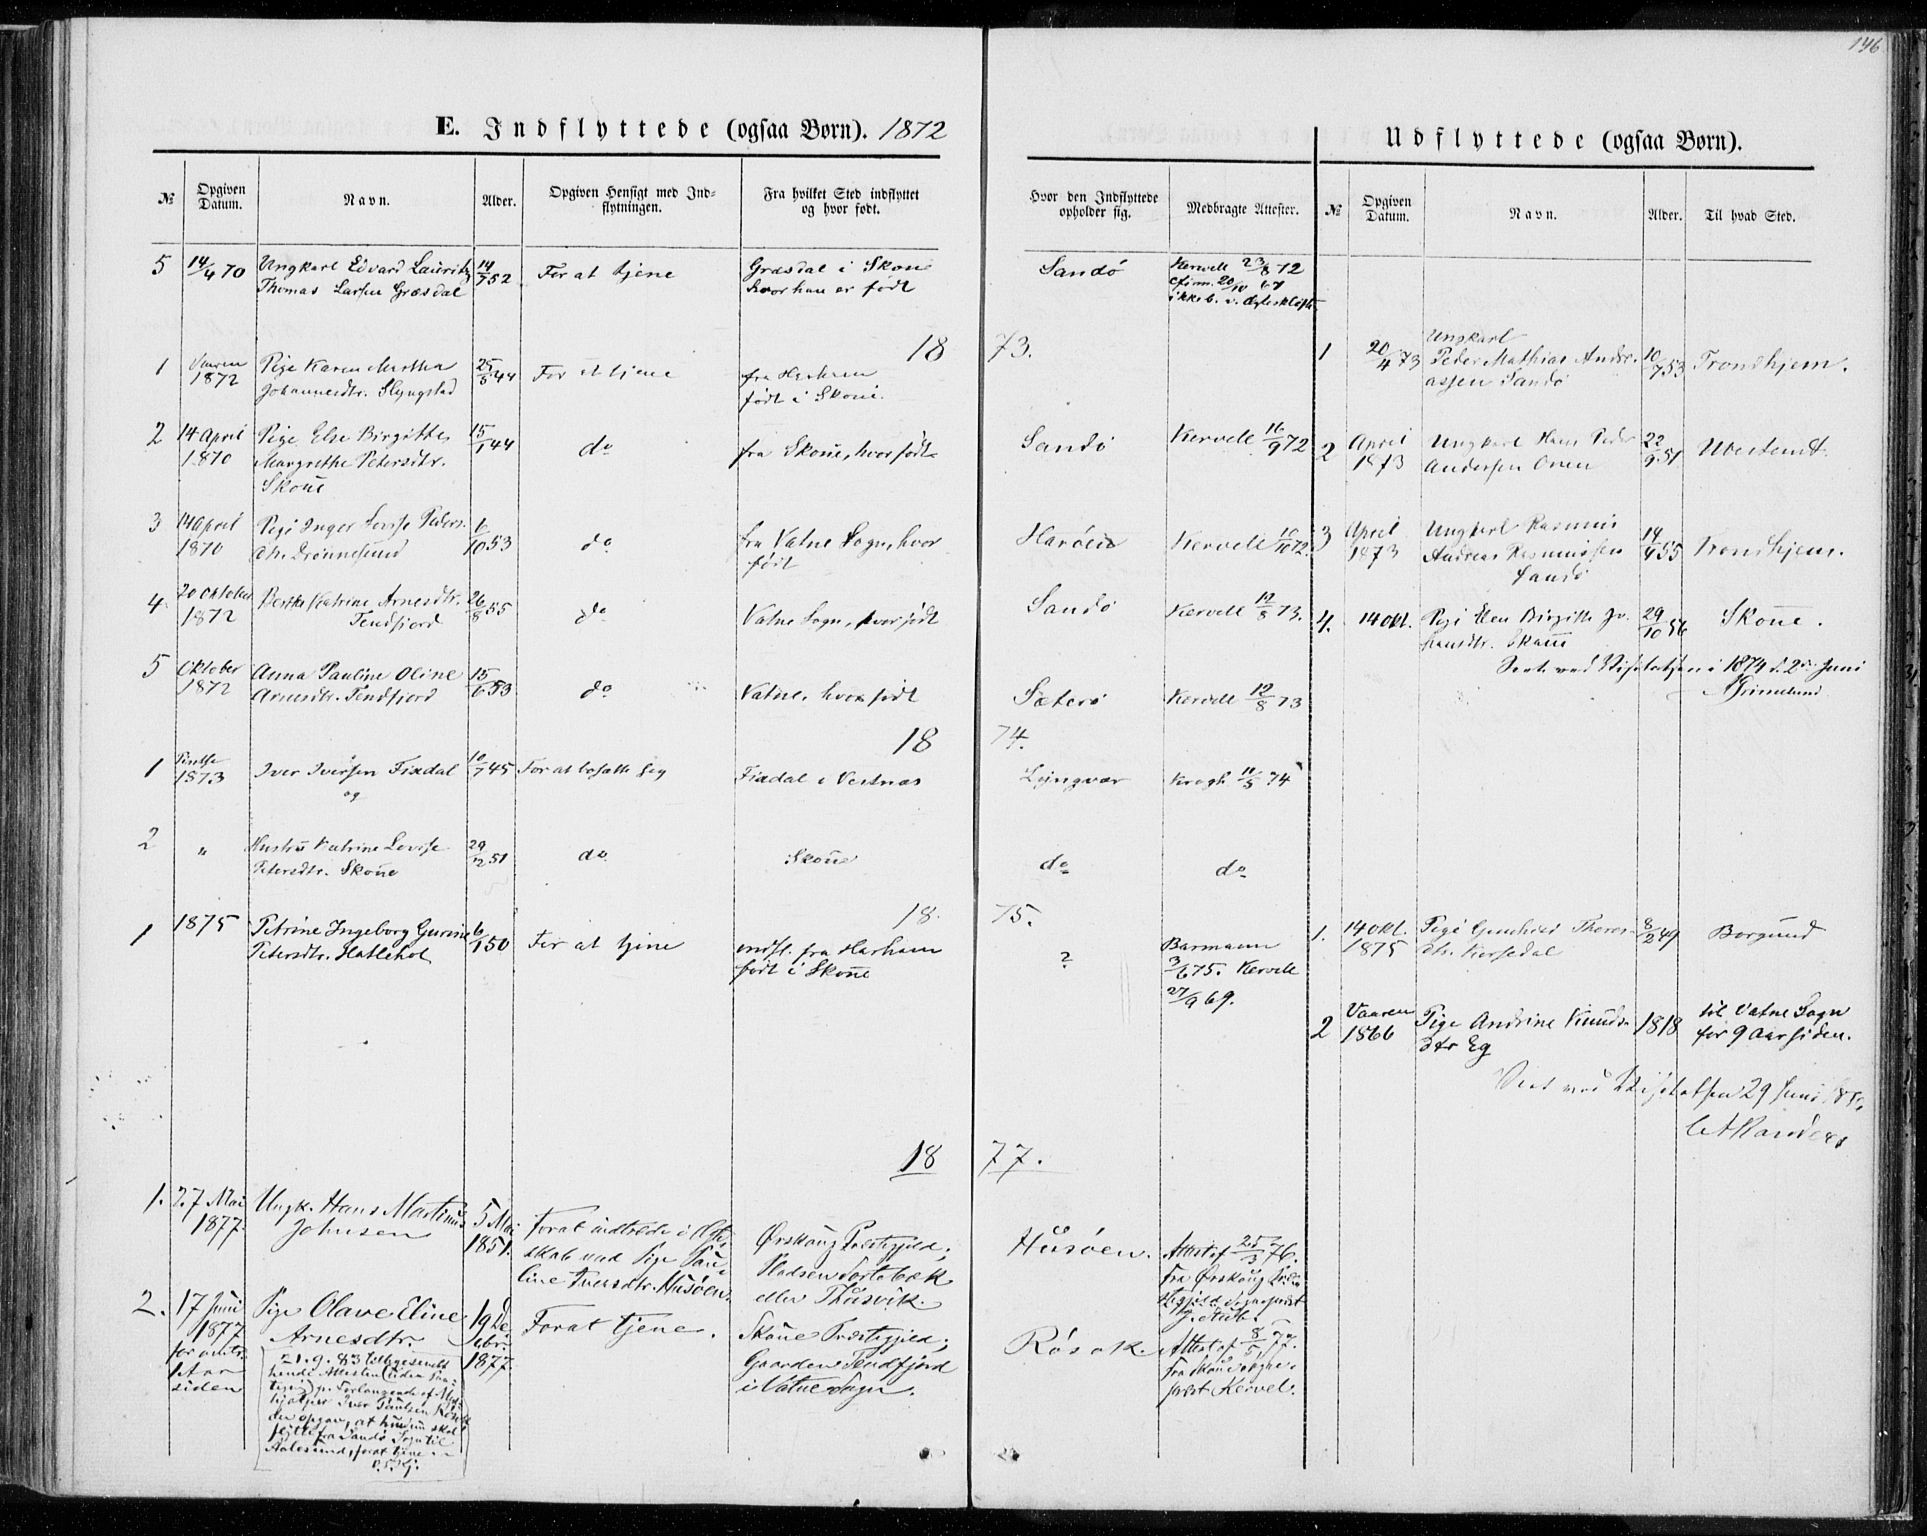 146
E. Indflyttede (ogsaa Børn). 1872
Udflyttede (ogsaa Børn).
№
Opgiven Datum.
Navn.
Alder.
Opgiven Hensigt med Ind=
flytningen.
Fra hvilket Sted indflyttet
og hvor født.
Hvor den Indflyttede
opholder sig.
Medbragte Attester.
№
Opgiven Datum.
Navn.
Alder.
Til hvad Sted.
5 14/4 70 Ungkarl Edvard Laurits 14/7 52 For at tjene Græsdal i Skoue Sandø Kervell 23/8 72
Thomas Larsen Græsdal hvor han er født
18 73.
1 Vaaren 1872 Pige Karen Martha 25/5 44 For at tjene fra Harham
Johannesdtr. Slyngstad født i Skoue.
2 14 April 1870 Pige Else Birgitte 15/1 44 do fra Skoue, hvor født Sandø Kervell 16/9 72
Margrethe Petersdtr.
Skoue
3 14 April 1870 Pige Inger Lovise Peders- 6/10 53 do fra Vatne Sogn, hvor Harøen Kervell 10/10 72
dtr. Drønnesund født
4 20 Oktober 1872 Berthe Katrine Arnesdtr. 26/8 55 do Vatne Sogn, hvor født Sandø Kervell 12/8 73.
Tendfjord
5 Oktober 1872 Anna Pauline Oline 15/6 53 do Vatne, hvor født Sæterø Kervell 12/8 73
Arnesdtr. Tendfjord
1 20/4 73 Ungkarl
Peder Mathias Andre- 10/7 53 Trondhjem.
assen Sandø
2 April 1873 Ungkarl Hans Peder 22/9 51 Ubestemt.
Andersen Onen
3 April 1873 Ungkarl Rasmus 14/4 55 Trondhjem.
Andreas Rasmussen
Sandø
4. 14 Okt. Pige Elen Birgitte Jo- 29/10 56 Skoue.
hansdtr. Skoue
Seet ved Visitatsen i 1874 d. 2den Juni
Grimelund
18 74.
1 Pintse 1873 Iver Iversen Fixdal 10/7 45 For at bosætte sig Fixdal i Vestnæs Lyngvær Krogh 11/5 74
og
2 " Hustru Katrine Lovise 29/12 51 do Skoue do do
Petersdtr. Skoue
18 75.
1 1875 Petrine Ingeborg Gurine 6/1 50 For at tjene indfl. fra Harham ? Barmann
Petersdtr. Hatlehol født i Skoue 3/6 75. Kervell
27/9 69.
1. 14 Okt. 1875 Pige Gunhild Thores- 8/2 49 Borgund
dtr. Korsedal
2 Vaaren 1866 Pige Andrine Knuds- 1818 til Vatne Sogn
dtr Eg for 9 Aar siden.
Seet ved Visitatsen 29 Juni
18 77.
1. 27 Mai 1877. Ungk. Hans Martinus 5 Mai 1851. For at indtræde i Ægte- Ørskoug Præstegjeld; Husøen. Attest af 25/3 76.
Johnsen skab med Pige Pau- Pladsen fra Ørskoug Præ-
line Iversdtr. Husøen. eller Thusvik. stegjeld
2. 17 Juni 1877 Pige Olave Eline 19 De- For at tjene. Skoue Præstegjeld; Røsok. Attest af 8/5 77.
for omtr. Arnesdtr. cebr. 1877. Gaarden Tendfjord fra Skoue Sogne-
1 Aar i Vatne Sogn. præst Kervel.
siden
21.9.83 tilbagesendt
hende Attesten
p. Forlangende af
hjælper Iver Paulsen Røsok
der opgav, at hun skal
flytte fra Sandø Sogn til
Aalesund, for at tjene